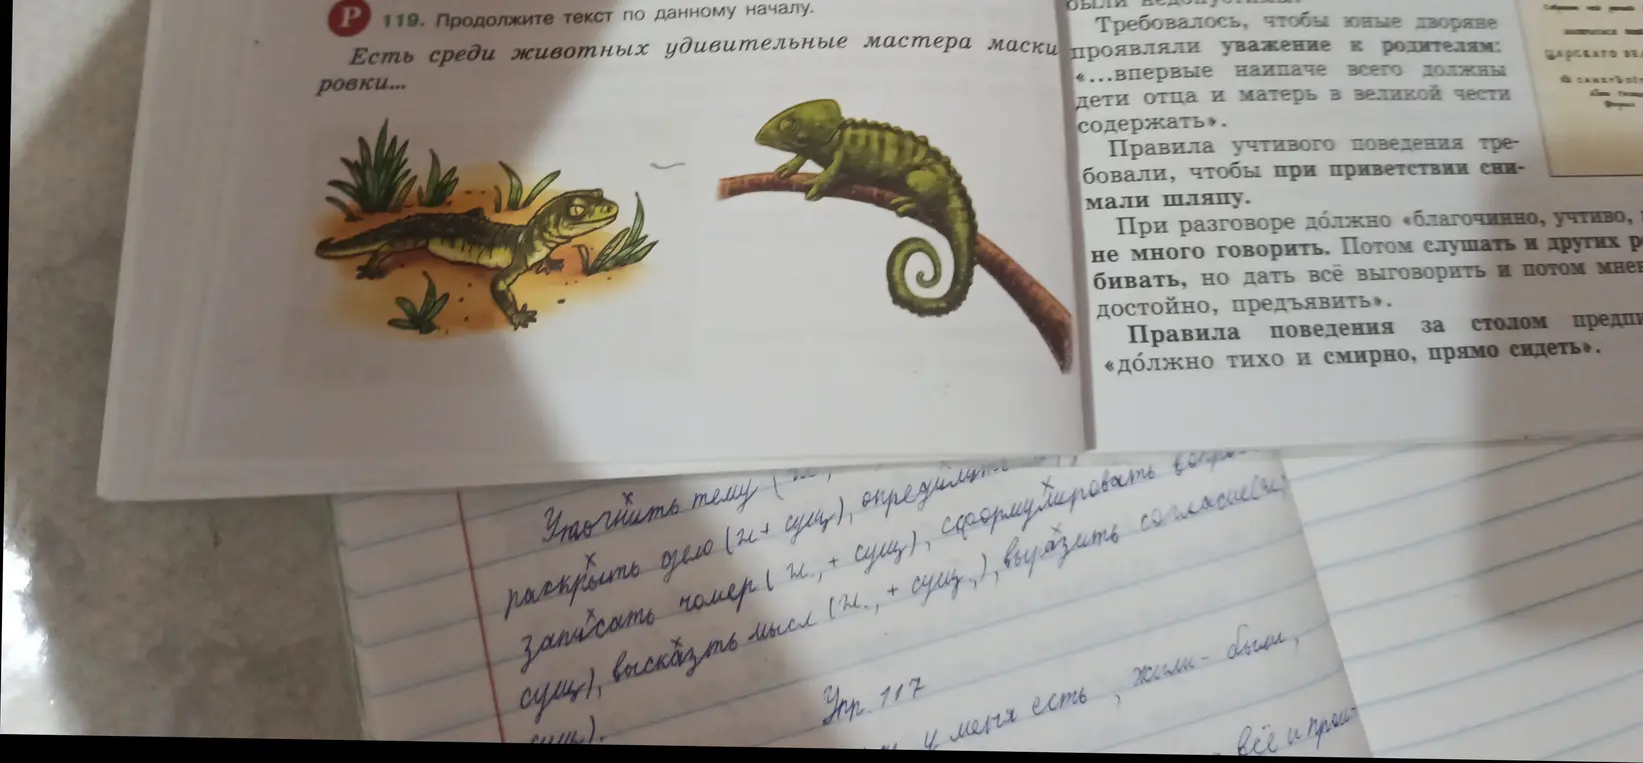 Р 119. Продолжите текст по данному началу.
Есть среди животных удивительные мастера маски
ровки...
Требовалось, чтобы юные дворяне
проявляли уважение к родителям:
«...впервые наипаче всего должны
дети отца и матерь в великой чести
содержать».
Правила учтивого поведения тре-
бовали, чтобы при приветствии сни-
мали шляпу.
При разговоре до́лжно «благочинно, учтиво,
не много говорить. Потом слушать и других
бивать, но дать всё выговорить и потом мне
достойно, предъявить».
Правила поведения за столом предпи
«до́лжно тихо и смирно, прямо сидеть».
ЦАРСКАГО
Уточнить тему (
раскрыть дело (н + сущ), определить
записать номер (н., + сущ), сформулировать
сущ), высказть мысл (н., + сущ.,), выразить согласие(н
сущ).
Упр. 117
у меня есть, жили-были,
всё и